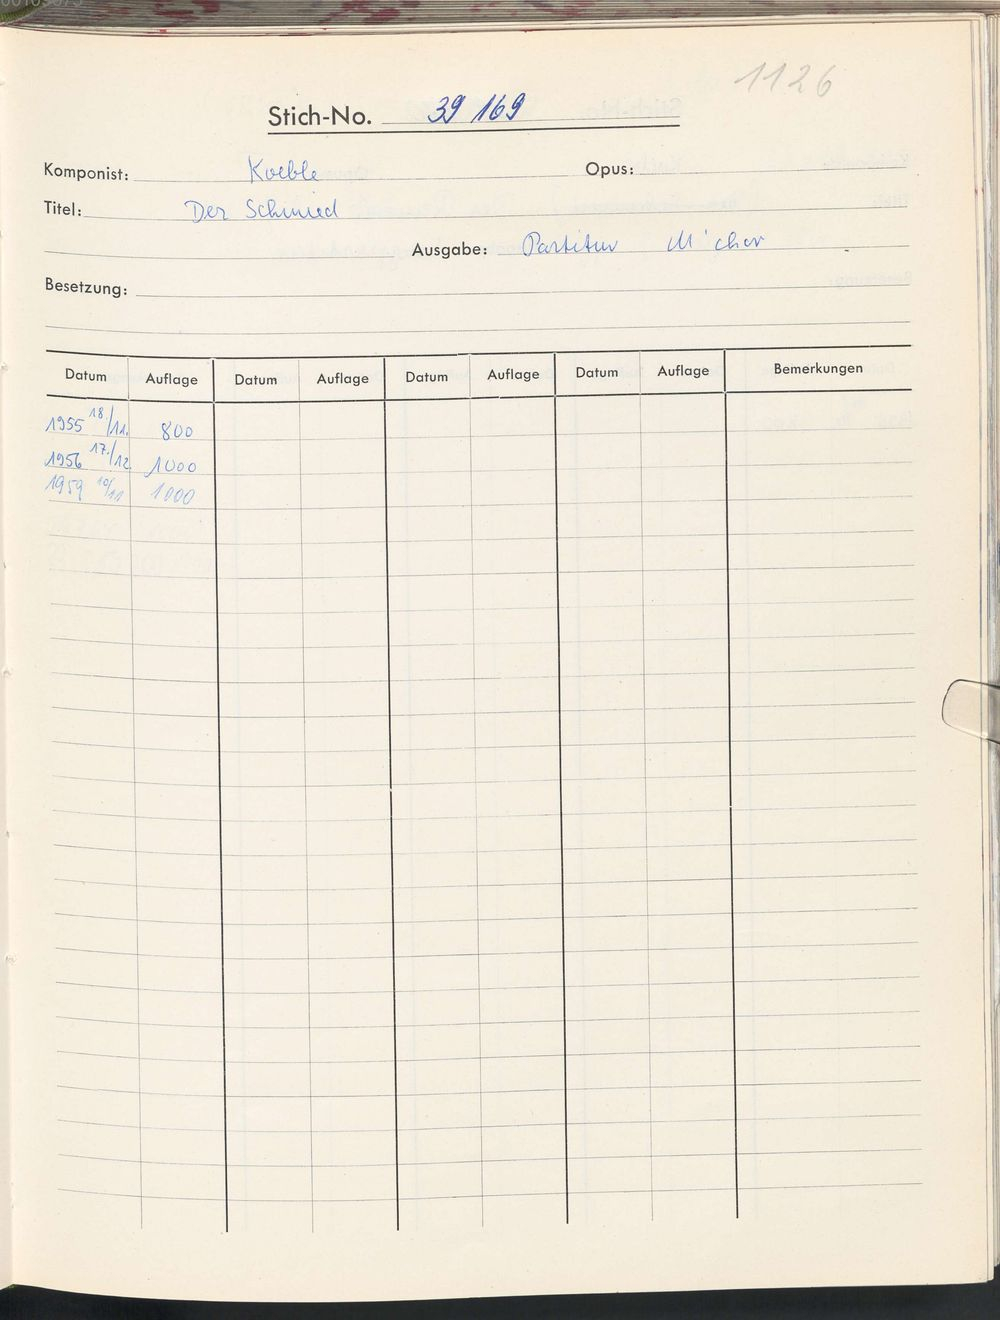 1126
Stich-No. 39 169
Komponist: Koelble Opus:
Titel: Der Schmied
Ausgabe: Partitur M'chor
Besetzung:
Datum Auflage Datum Auflage Datum Auflage Datum Auflage Bemerkungen
1955 18./11. 800
1956 17./12. 1000
1959 10/11 1000